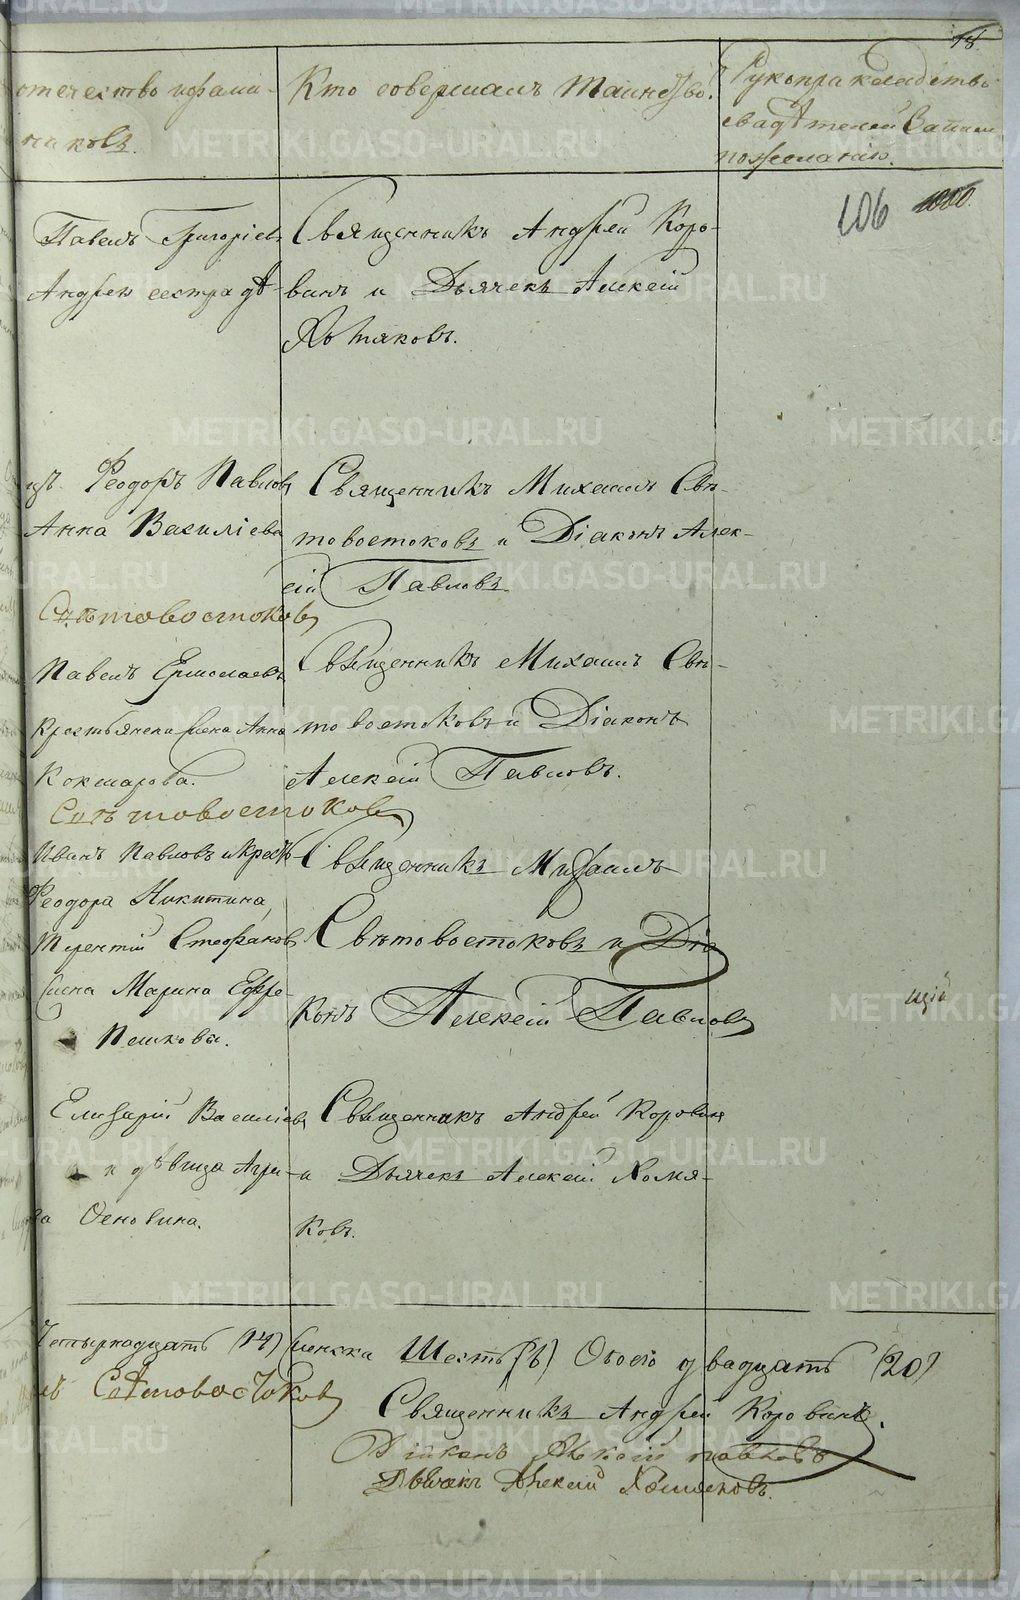 18.
отечество и фами-
никовъ.
Кто совершалъ таинство.
Рукоприкладство
свидѣтелей записи
по желанію.
106
Павелъ Григоріевъ
Андрея сестра дѣ-
Священникъ Андрей Коро-
винъ и Дьячекъ Алексій
Хомяковъ.
Феодоръ Павловъ
Анна Василіева
Священникъ Михаилъ Свѣ-
товостоковъ и Діаконъ Алек-
сій Павловъ
Свѣтовостоковъ
Павелъ Ермолаевъ
Крестьянска Жена Анна
Кокшарова.
Священникъ Михаилъ Свѣ-
товостоковъ и Діаконъ
Алексій Павловъ.
Свѣтовостоковъ
Иванъ Павловъ и Кресть-
Феодора Никитина,
Терентій Стефановъ
Жена Марина Ефре-
Пешкова.
Священникъ Михаилъ
Свѣтовостоковъ и Діа
конъ Алексій Павловъ
щій
Елизарій Василіевъ
и дѣвица Агри-
ва Осковина.
Священникъ Андрей Коровинъ
и Дьячекъ Алексій Хомя-
ковъ.
Четырнадцать (14) Женска Шесть (6) Обоего двадцать (20)
Свѣтовостоковъ
Священникъ Андрей Коровинъ.
Діаконъ Алексій Павловъ
Дьячекъ Алексій Хомяковъ.
METRIKI.GASO-URAL.RU